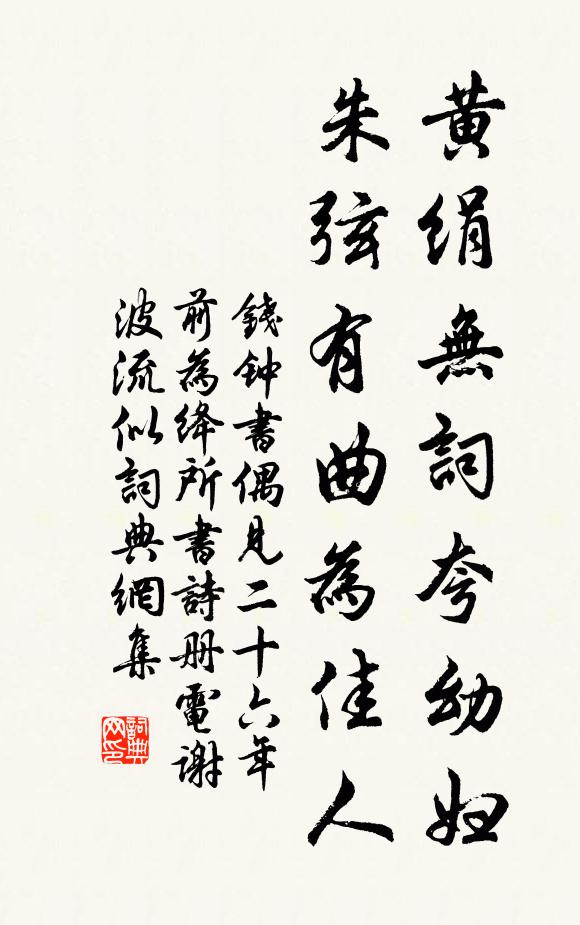 黄绢無詞夸幼妇
朱弦有曲為佳人
錢钟書偶見二十六年
前為绛所書詩册電謝
波流似詞典網集
詞典
网印